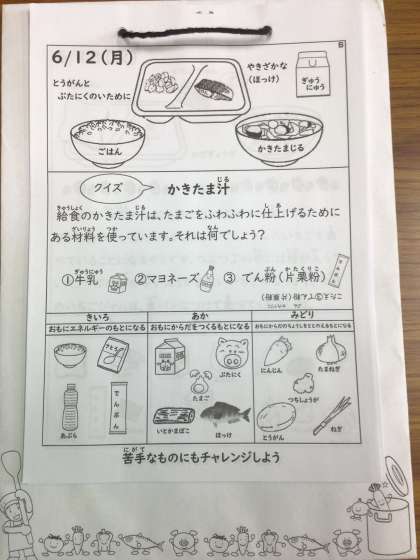 6/12(月)
6
とうがんと
ぶたにくのいために
やきざかな
(ほっけ)
ぎゅう
にゅう
ごはん
かきたまじる
クイズ
かきたま汁
じる
給食のかきたま汁は、たまごをふわふわに仕上げるために
きゅうしょく じる し あ
ある材料を使っています。それは何でしょう?
ざいりょう つか なん
①牛乳 ②マヨネーズ ③でん粉(片栗粉)
ぎゅうにゅう ぷん かたくりこ
こたえ③でん粉(片栗粉)
きいろ あか みどり
おもにエネルギーのもとになる おもにからだをつくるもとになる おもにからだのちょうしをととのえるもとになる
さとう
でんぷん
あぶら
ぶたにく
たまご
いとかまぼこ
ほっけ
にんじん
たまねぎ
つちしょうが
とうがん
ねぎ
にがて
苦手なものにもチャレンジしよう